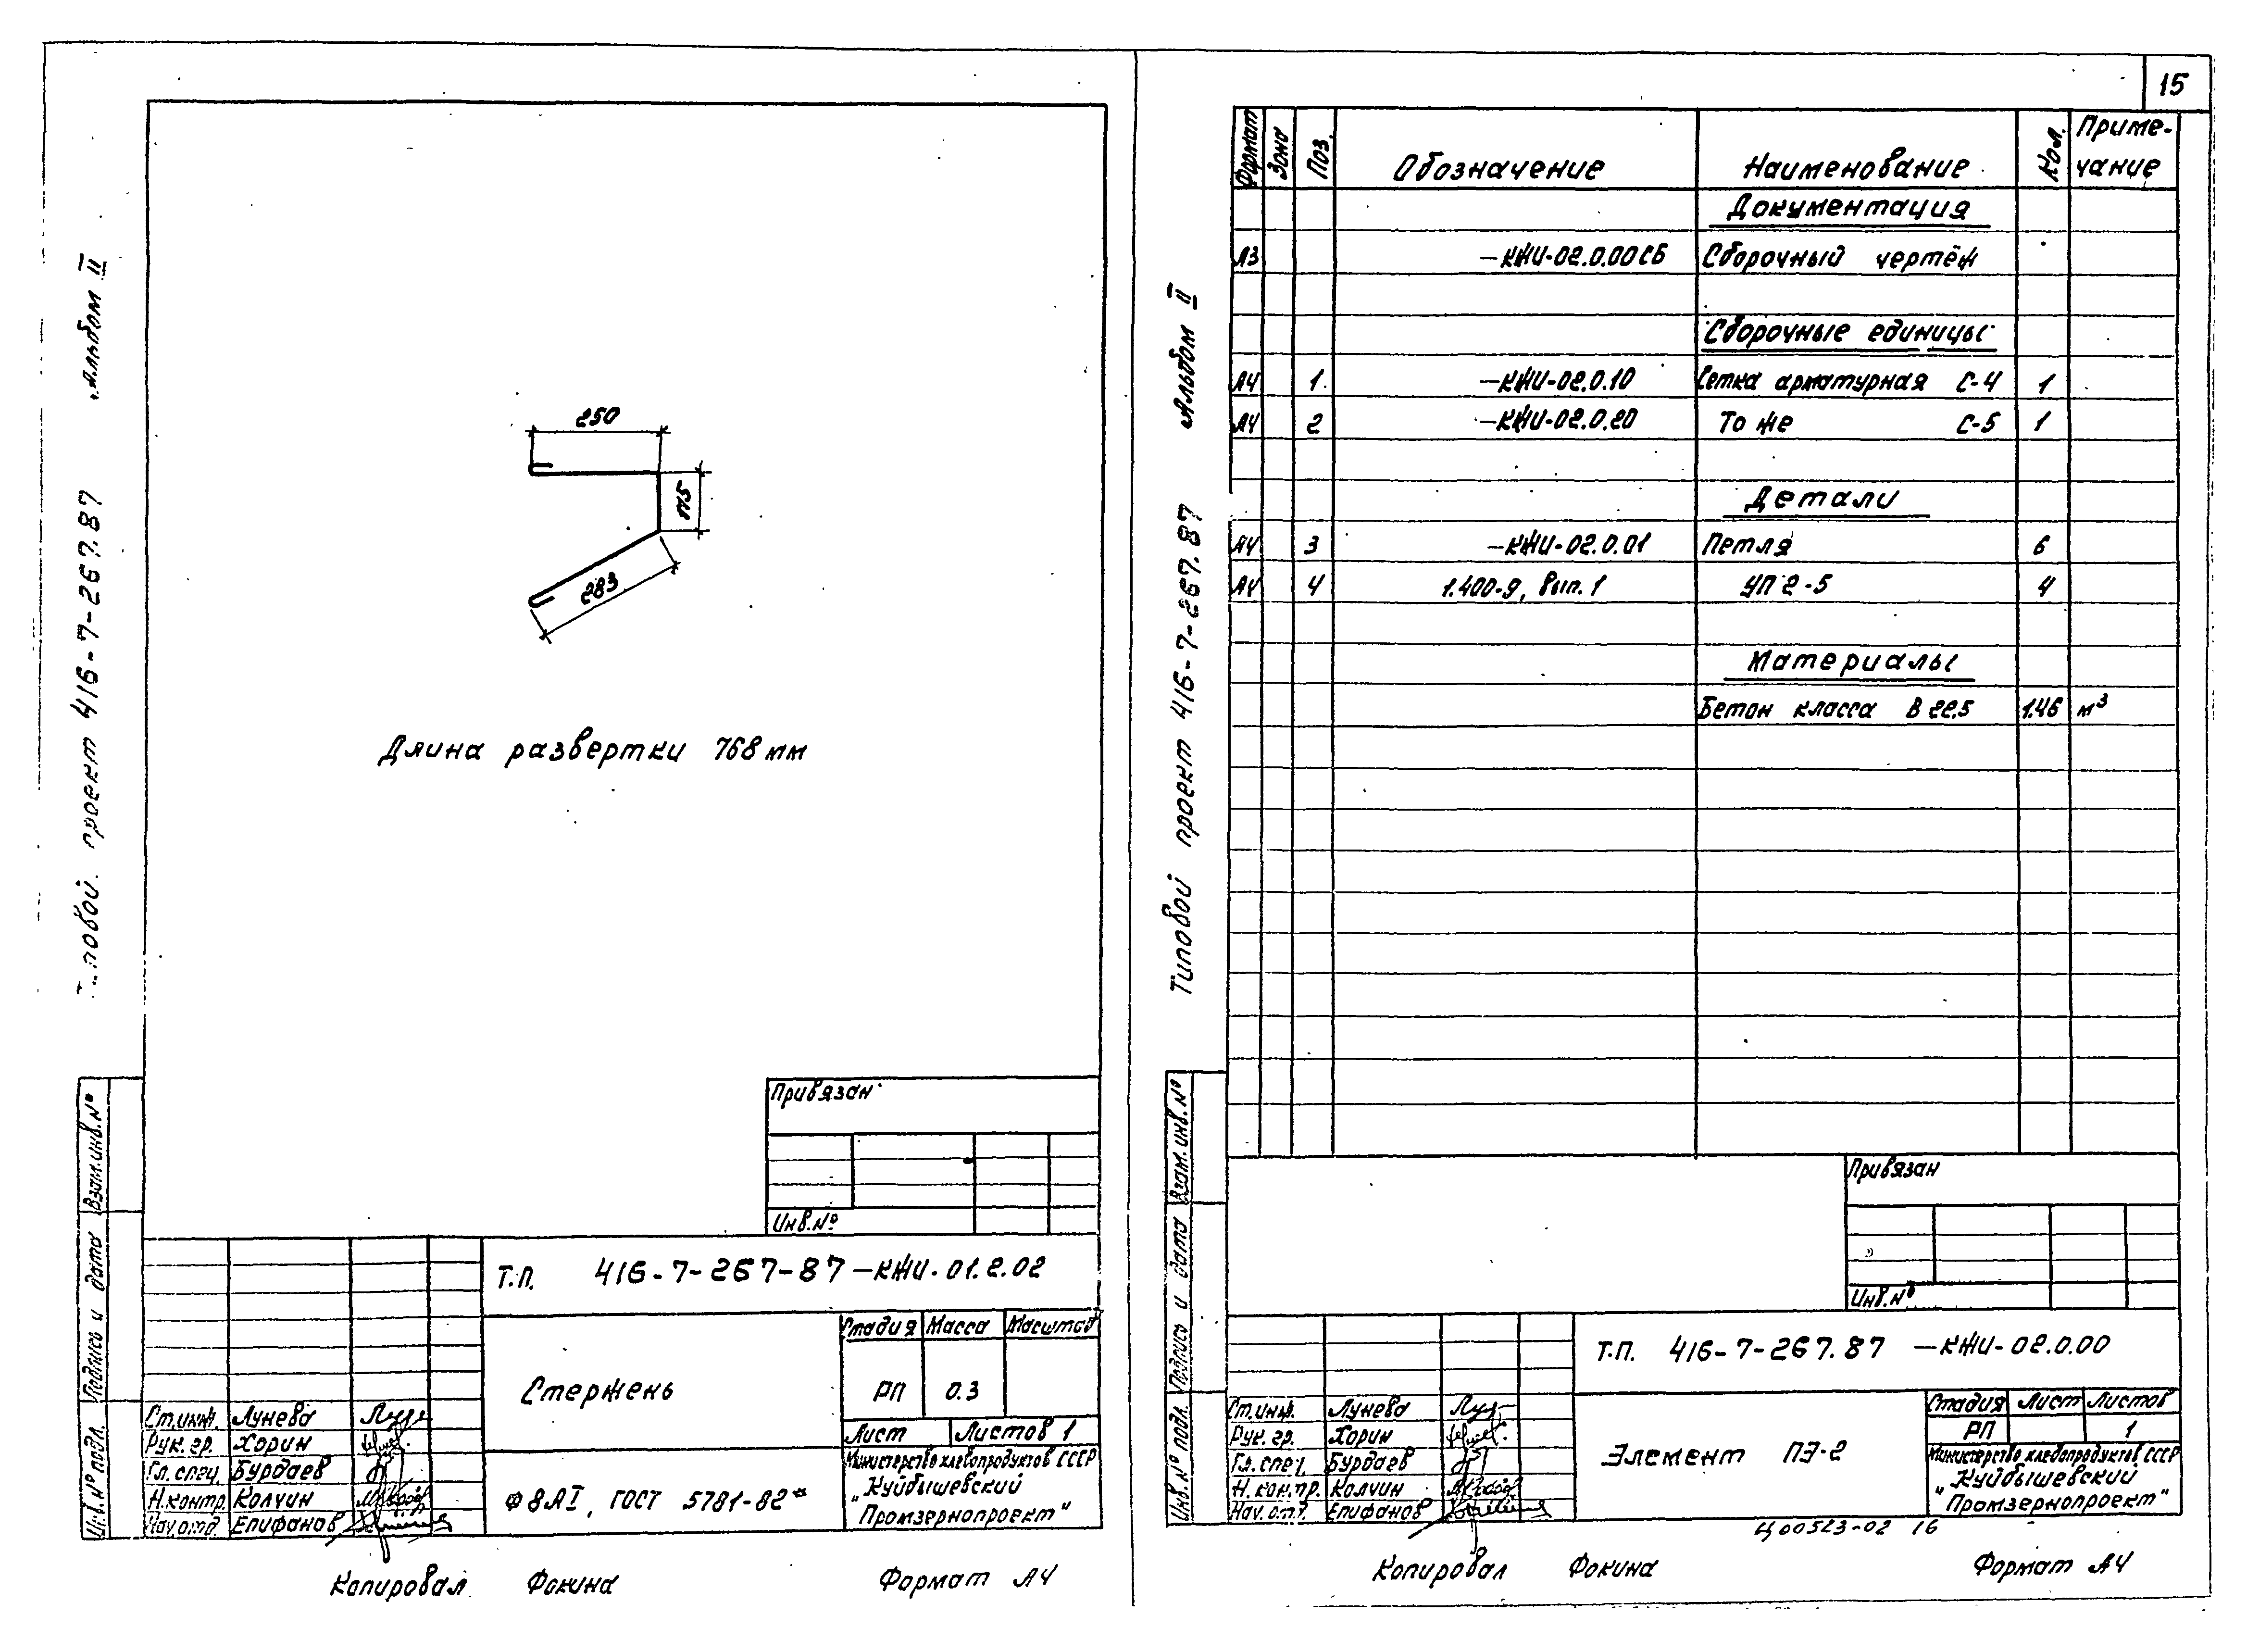 Альбом II
Т..повой проект 416-7-267.87
250
115
283
Длина развертки 768 мм
Привязан
Инв.№
Взам.инв.№
Подпись и дата
Инв.№ подл.
Т.П. 416-7-267-87 —КЖИ-01.2.02
Стадия Масса Масштаб
Стержень
РП 0.3
Лист Листов 1
Ст.инж. Лунева
Рук. гр. Хорин
Гл. спец. Бурдаев
Н.контр. Колчин
Нач.отд. Епифанов
Ф8АI, ГОСТ 5781-82*
Министерство хлебопродуктов СССР
"Куйбышевский
Промзернопроект"
Копировал Фокина Формат А4
15
Альбом II
Типовой проект 416-7-267.87
Формат Зона Поз. Обозначение Наименование Кол. Приме-
чание
Документация
А3 —КЖИ-02.0.00СБ Сборочный чертёж
Сборочные единицы
А4 1 —КЖИ-02.0.10 Сетка арматурная С-4 1
А4 2 —КЖИ-02.0.20 То же С-5 1
Детали
А4 3 —КЖИ-02.0.01 Петля 6
А4 4 1.400-9, вып. 1 УП 2-5 4
Материалы
Бетон класса В 22.5 1.46 м³
Привязан
Инв.№
Взам.инв.№
Подпись и дата
Инв.№ подл.
Т.П. 416-7-267.87 —КЖИ-02.0.00
Стадия Лист Листов
РП 1
Элемент ПЭ-2
Ст.инж. Лунева
Рук. гр. Хорин
Гл. спец. Бурдаев
Н. контр. Колчин
Нач. отд. Епифанов
Министерство хлебопродуктов СССР
"Куйбышевский
Промзернопроект"
Ц00523-02 16
Копировал Фокина Формат А4